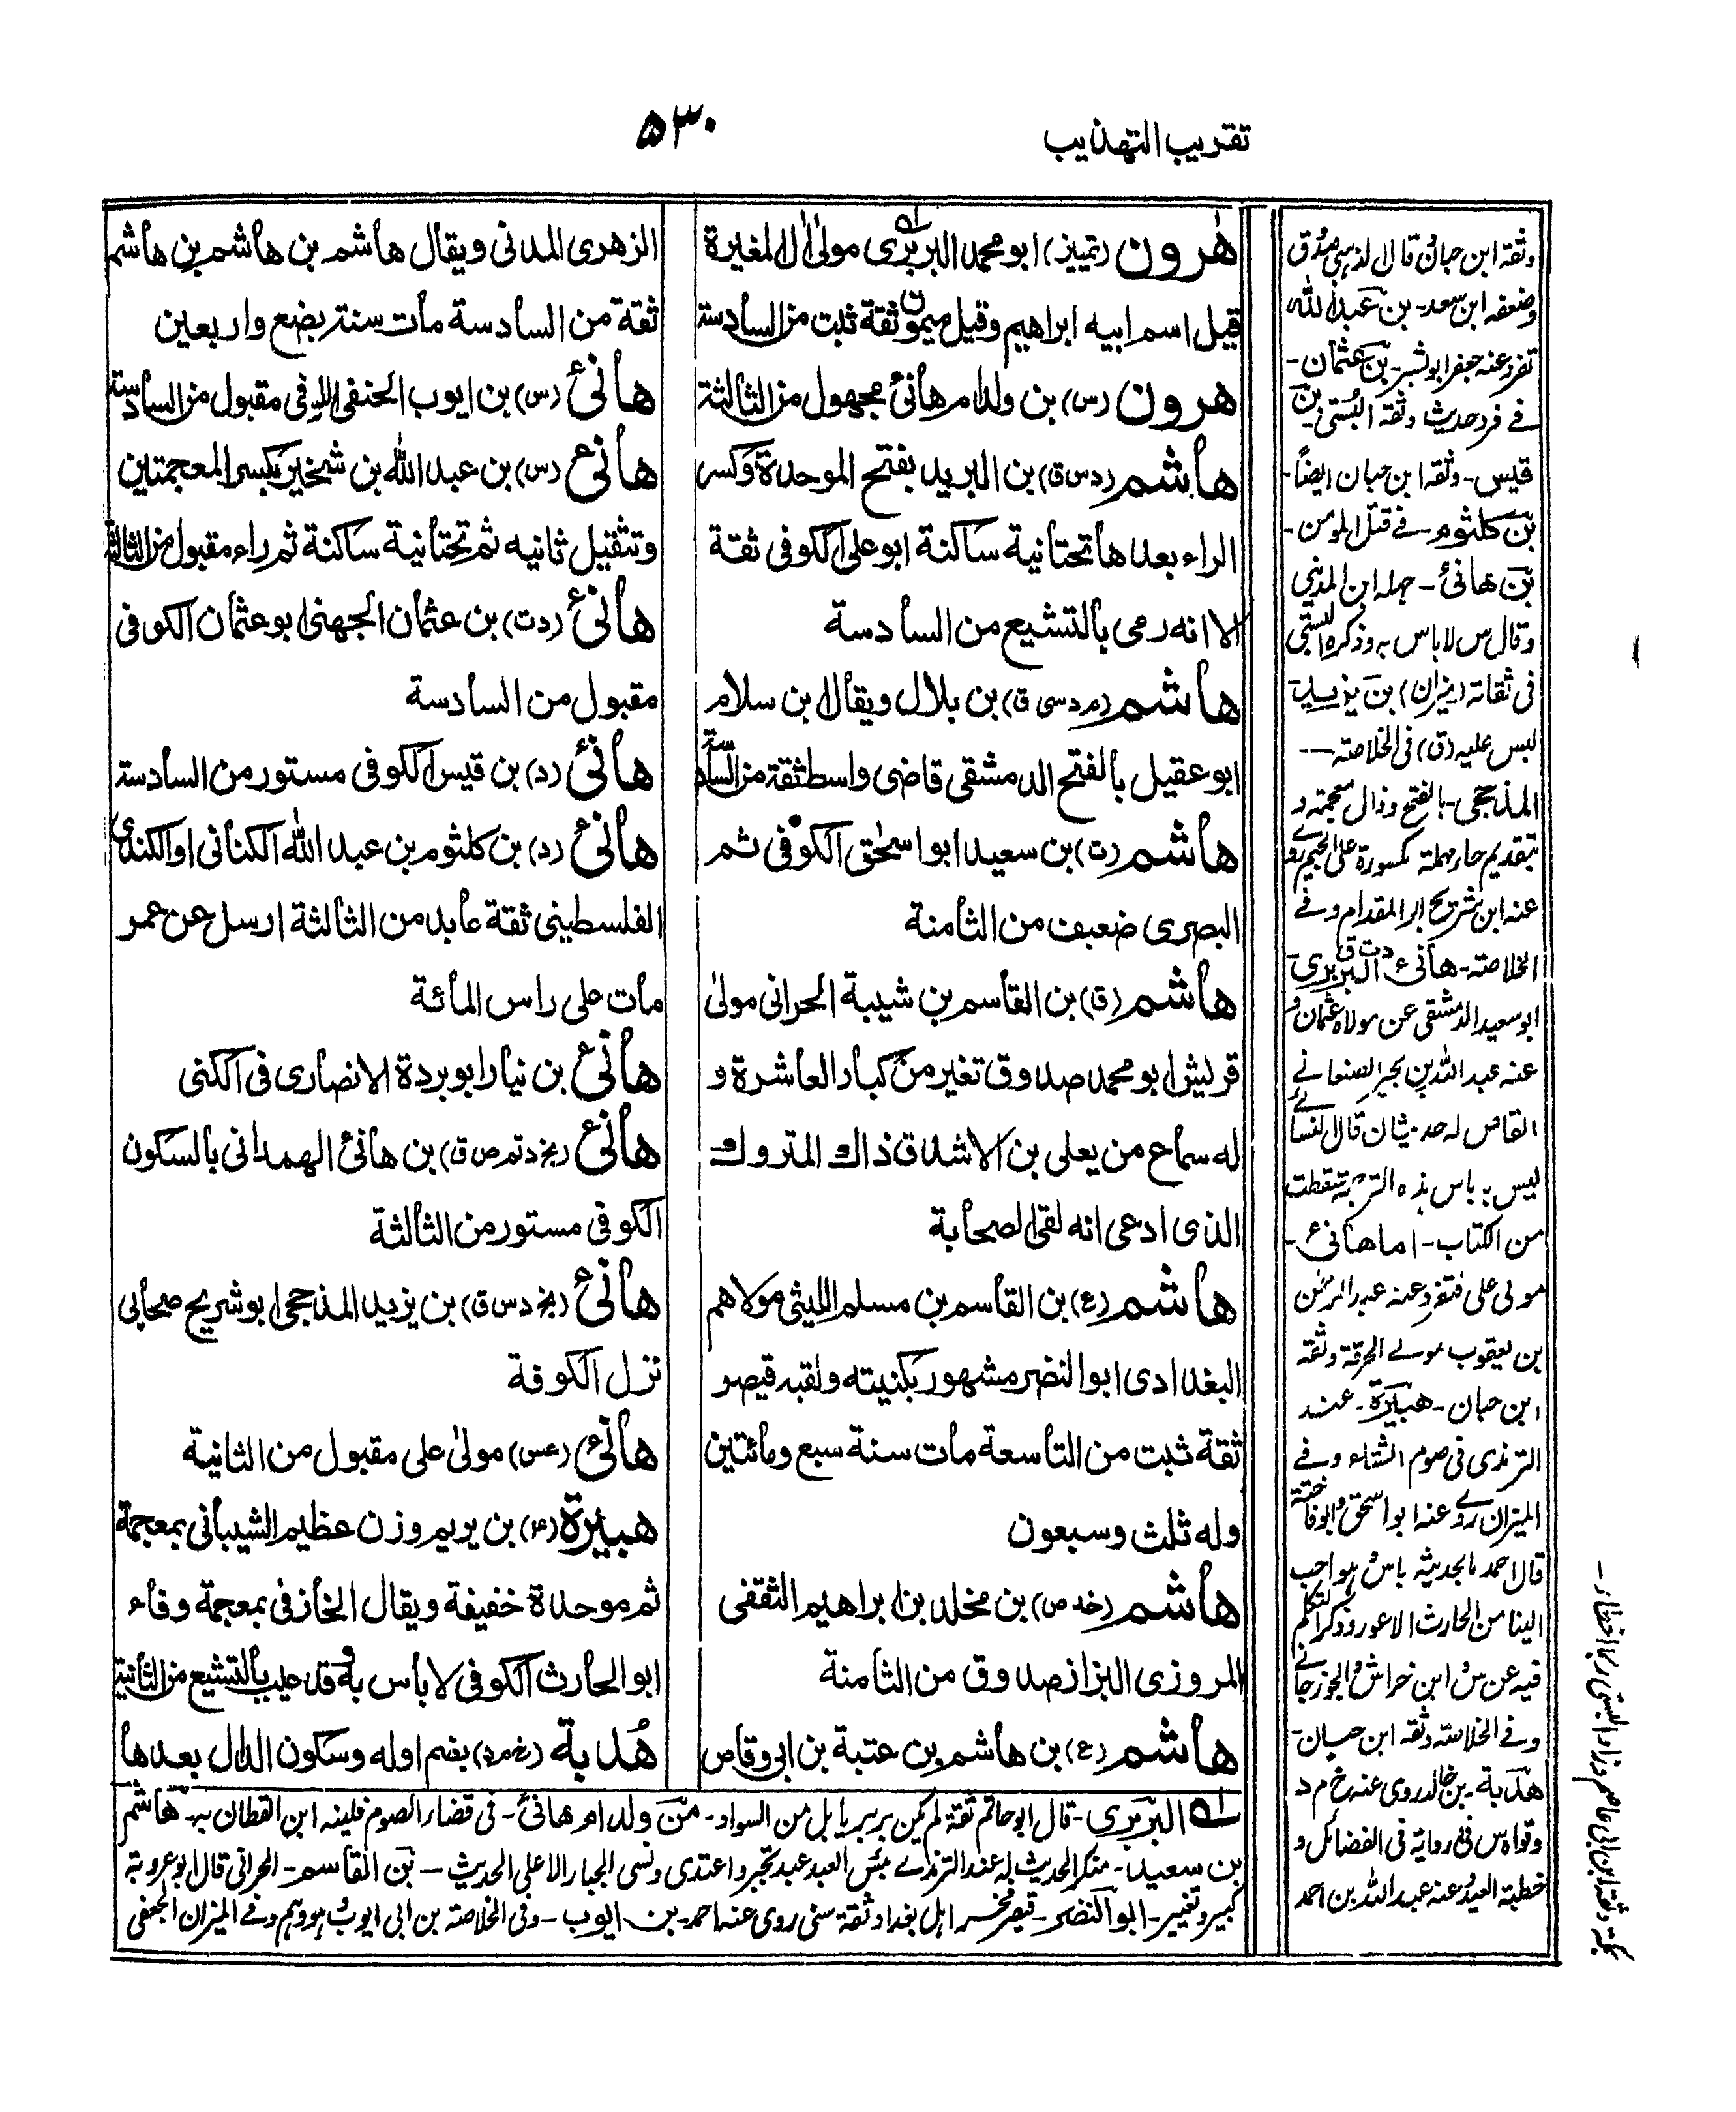 تقريب التهذيب
٥٣٠
هٰرون (تمييز) ابو محمد البربرى مولىٰ اٰل المغيرة
قيل اسم ابيه ابراهيم وقيل ميمون ثقة ثبت من السادسة
هرون (س) بن ولد ام هانئ مجهول من الثالثة
هاشم (دس ق) بن البريد بفتح الموحدة وكسر
الراء بعدها تحتانية ساكنة ابو على الكوفى ثقة
الا انه رمى بالتشيع من السادسة
هاشم (مد سى ق) بن بلال ويقال ابن سلام
ابو عقيل بالفتح الدمشقى قاضى واسط ثقة من السادسة
هاشم (ت) بن سعيد ابو اسحٰق الكوفى ثم
البصرى ضعيف من الثامنة
هاشم (ق) بن القاسم بن شيبة الحرانى مولىٰ
قريش ابو محمد صدوق تغير من كبار العاشرة و
له سماع من يعلى بن الاشدق ذاك المتروك
الذى ادعى انه لقى الصحابة
هاشم (ع) بن القاسم بن مسلم الليثى مولاهم
البغدادى ابو النضر مشهور بكنيته ولقبه قيصر
ثقة ثبت من التاسعة مات سنة سبع ومائتين
وله ثلث وسبعون
هاشم (خد ص) بن مخلد بن ابراهيم الثقفى
المروزى البزاز صدوق من الثامنة
هاشم (ع) بن هاشم بن عتبة بن ابى وقاص
الزهرى المدنى ويقال هاشم بن هاشم بن هاشم
ثقة من السادسة مات سنة بضع واربعين
هانئ (س) بن ايوب الحنفى الكوفى مقبول من السادسة
هانئ (س) بن عبد الله بن شخير بكسر المعجمتين
وتثقيل ثانيه ثم تحتانية ساكنة ثم راء مقبول من الثالثة
هانئ (دت) بن عثمان الجهنى ابو عثمان الكوفى
مقبول من السادسة
هانئ (د) بن قيس الكوفى مستور من السادسة
هانئ (د) بن كلثوم بن عبد الله الكنانى او الكندى
الفلسطينى ثقة عابد من الثالثة ارسل عن عمر
مات على راس المائة
هانئ بن نيار ابو بردة الانصارى فى الكنى
هانئ (بخ د تم ص ق) بن هانئ الهمدانى بالسكون
الكوفى مستور من الثالثة
هانئ (بخ دس ق) بن يزيد المذحجى ابو شريح صحابى
نزل الكوفة
هانئ (عس) مولىٰ على مقبول من الثانية
هبيرة (٤) بن يريم وزن عظيم الشيبانى بمعجمة
ثم موحدة خفيفة ويقال الخارفى بمعجمة وفاء
ابو الحارث الكوفى لا باس به وقد عيب بالتشيع من الثانية
هُدبة (خ م د) بضم اوله وسكون الدال بعدها
وثقه ابن حبان قال الذهبى صدوق
وضعفه ابن سعد - بن عبد الله
تفرد عنه جعفر ابو بشير - بن عثمان -
فى فرد حديث وثقه البستى - بن
قيس - وثقه ابن حبان ايضاً -
بن كلثوم - فى قتل المومن -
بن هانئ - جهله ابن المدينى
وقال س لا باس به وذكره البستى
فى ثقاته (ميزان) بن يزيد
ليس عليه (ق) فى الخلاصته —
المذحجى - بالفتح وذال معجمة و
بتقديم حاء مهملة مكسورة على الجيم روى
عنه ابن شريح ابو المقدام وفى
الخلاصته - هانئ د ت ق البربرى -
ابو سعيد الدمشقى عن مولاه عثمان و
عنه عبد الله بن بحير الصنعانى
القاص له حديثان قال النسائى
ليس به باس هذه الترجمة سقطت
من الكتاب - اما هانئ -
مولى على فتفرد عنه عبد الرحمٰن
بن يعقوب مولى الحرقة وثقه
ابن حبان - هبيرة - عند
الترمذى فى صوم الشتاء وفى
الميزان روى عنه ابو اسحٰق وابو فاختة
قال احمد لا بحديثه باس هو احب
الينا من الحارث الاعور وذكر التكلم
فيه عن س وابن خراش والجوزجانى
وفى الخلاصته وثقه ابن حبان -
هدبة - بن خالد روى عنه خ م د
وقواه س فى رواية فى الفضائل و
خطبة العيد وعنه عبد الله بن احمد
له البربرى - قال ابو حاتم ثقة لم يكن بربريا بل من السواد - من ولد ام هانئ - فى قضاء الصوم فلينه ابن القطان به - هاشم
بن سعيد - منكر الحديث له عند الترمذى بئس العبد عبد تجبر واعتدى ونسى الجبار الاعلى الحديث — بن القاسم - الحرانى قال ابو عروبة
كبر وتغير - ابو النضر - قيصر مفخر اهل بغداد ثقة سنى روى عنه احمد - بن ايوب - وفى الخلاصته بن ابى ايوب وهو وهم وفى الميزان الجعفى